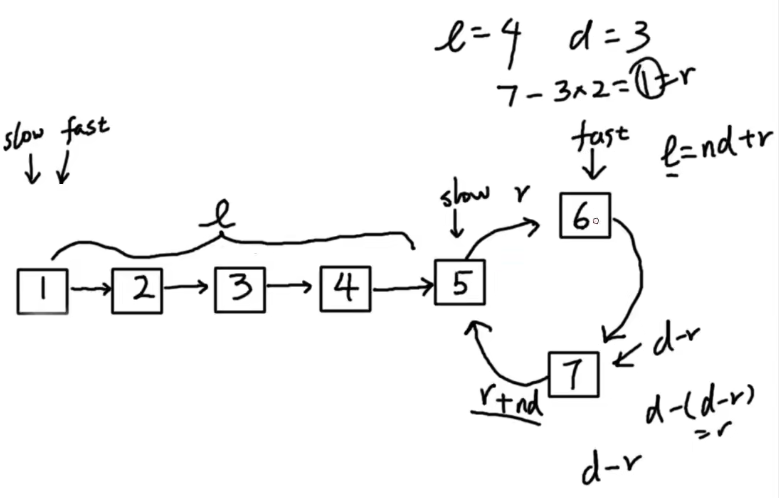 l=4 d=3
7-3×2=1=r
slow fast
fast
l=nd+r
l
slow r
6
1 2 3 4 5
d-r
7
r+nd
d-(d-r)
=r
d-r